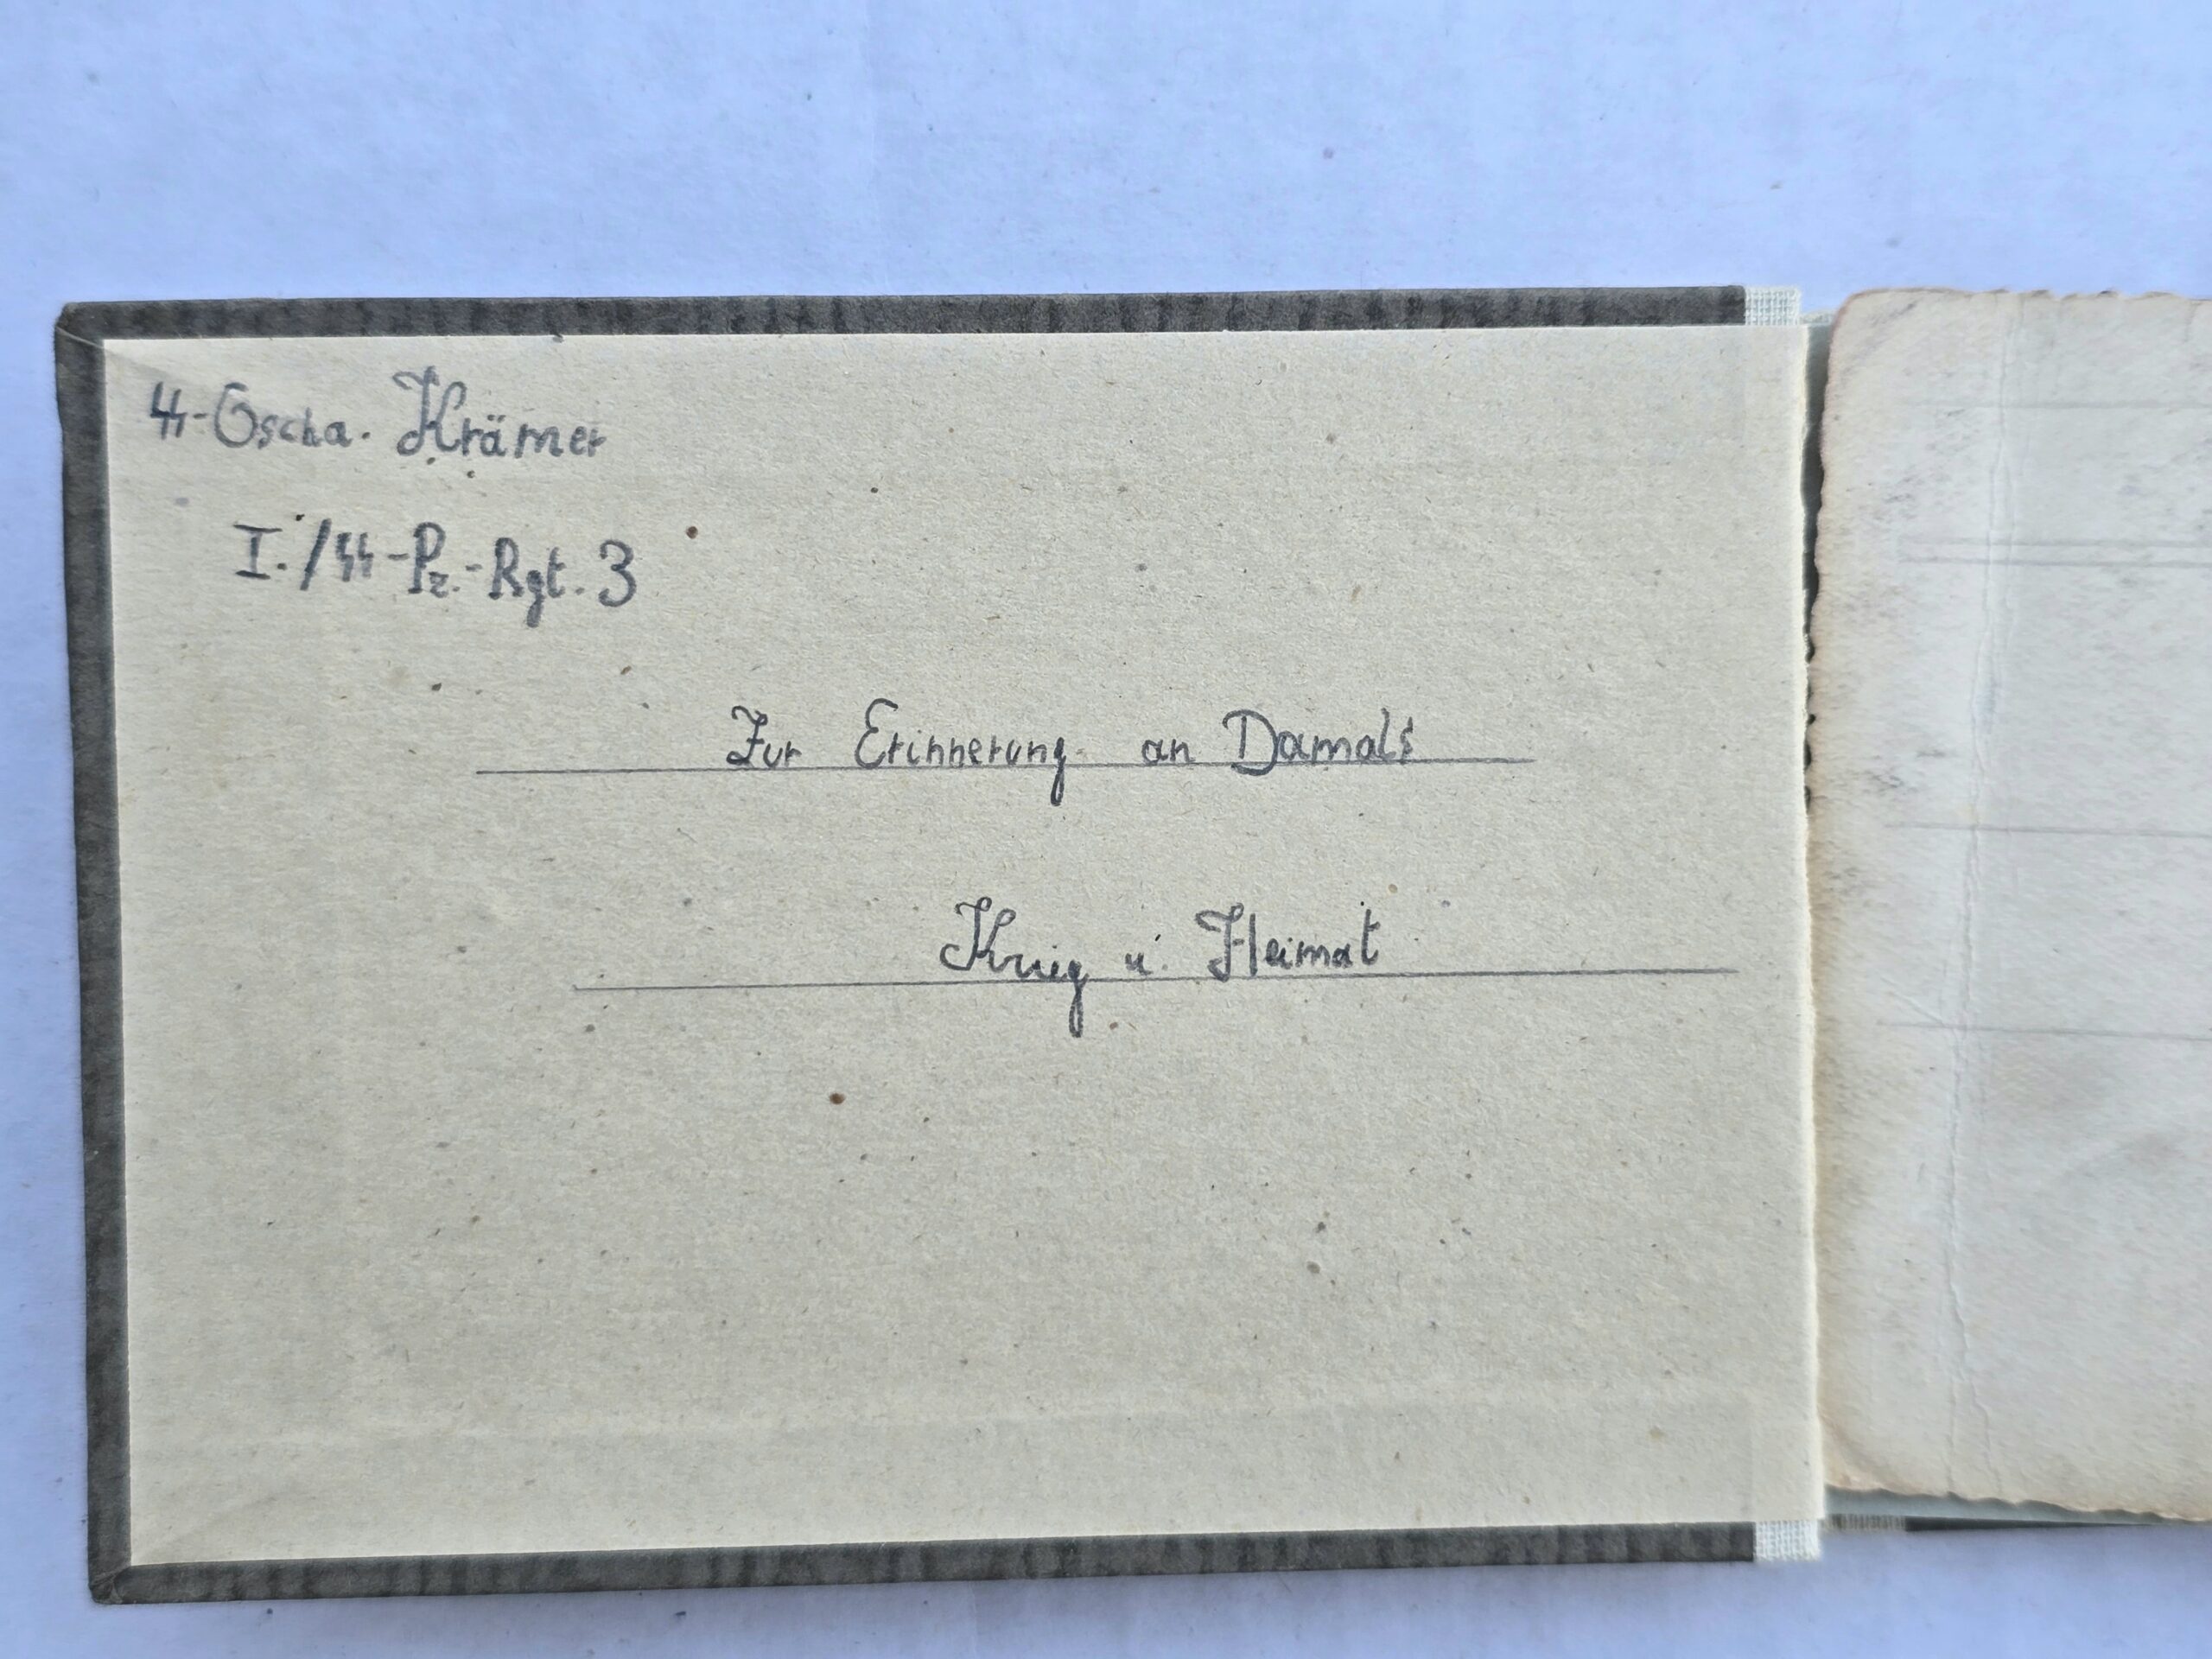 ᛋᛋ-Oscha. Krämer
I./ᛋᛋ-Pz.-Rgt. 3
Zur Erinnerung an Damals
Krieg u. Heimat